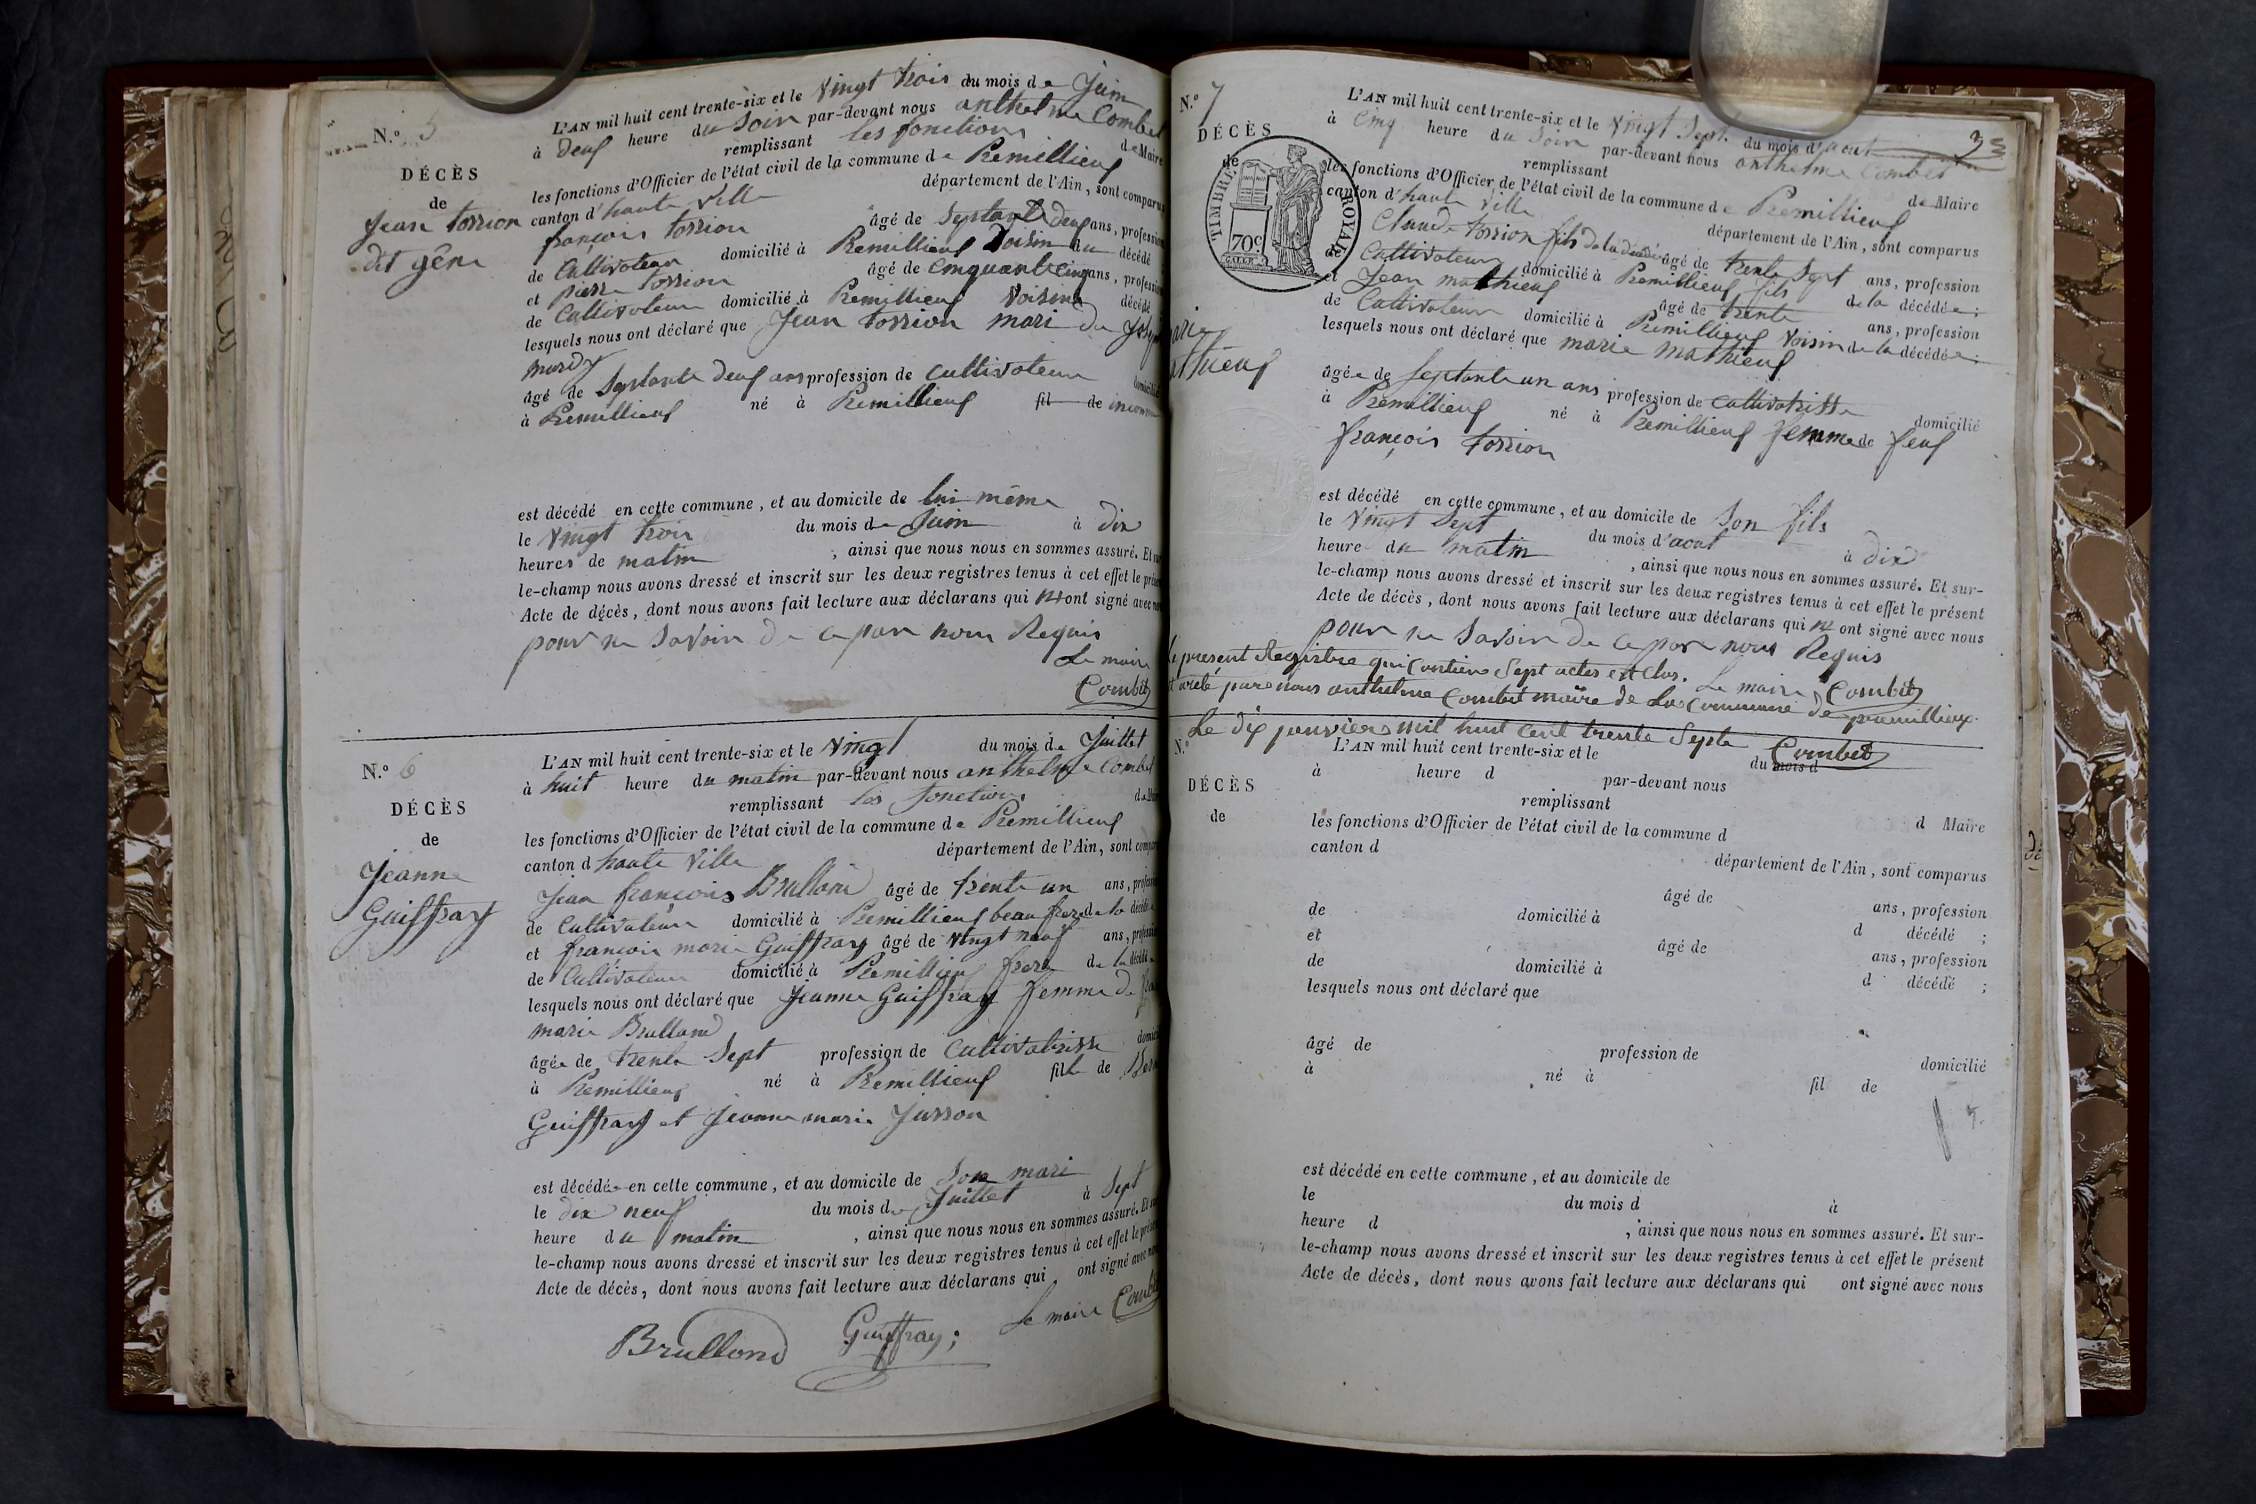 N.o 5
DÉCÈS
de
Jean torrion
dit gêne
L'AN mil huit cent trente-six et le vingt trois du mois de Juin
à deux heure du Soir par-devant nous anthelme Combet
remplissant les fonctions de Maire
les fonctions d'Officier de l'état civil de la commune de Premillieux
canton d'haute ville département de l'Ain, sont comparus
françois torrion âgé de Septante deux ans, profession
de Cultivateur domicilié à Premillieux Voisin du décédé
et pierre torrion âgé de cinquante cinq ans, profession
de Cultivateur domicilié à Premillieux Voisin décédé
lesquels nous ont déclaré que Jean torrion mari de
âgé de Septante deux ans profession de cultivateur domicilié
à Premillieux né à Premillieux fil de
est décédé en cette commune, et au domicile de lui même
le vingt trois du mois de Juin à dix
heures de matin, ainsi que nous nous en sommes assuré. Et sur
le-champ nous avons dressé et inscrit sur les deux registres tenus à cet effet le présent
Acte de décès, dont nous avons fait lecture aux déclarans qui n'ont signé avec nous
pour ne Savoir de ce par nous Requis
Le maire
Combet
N.o 6
DÉCÈS
de
Jeanne
Guiffray
L'AN mil huit cent trente-six et le vingt du mois de Juillet
à huit heure du matin par-devant nous anthelme Combet
remplissant les fonctions de Maire
les fonctions d'Officier de l'état civil de la commune de Premillieux
canton d haute Ville département de l'Ain, sont comparus
Jean françois Brulland âgé de trente un ans, profession
de Cultivateur domicilié à Premillieux beau frere de la décédée
et françois marie Guiffray âgé de vingt neuf ans, profession
de Cultivateur domicilié à Premillieux frere de la décédée
lesquels nous ont déclaré que Jeanne Guiffray femme de
marie Brulland
âgée de trente Sept profession de Cultivatrisse domicilié
à Premillieux né à Premillieux fille de
Guiffray et Jeanne marie Jusson
est décédée en cette commune, et au domicile de Son mari
le dix neuf du mois de Juillet à Sept
heure du matin, ainsi que nous nous en sommes assuré. Et sur
le-champ nous avons dressé et inscrit sur les deux registres tenus à cet effet le présent
Acte de décès, dont nous avons fait lecture aux déclarans qui ont signé avec nous
Brulland Guiffray; Le maire Combet
N.o 7
DÉCÈS
de
TIMBRE ROYAL
70c
3
L'AN mil huit cent trente-six et le vingt Sept du mois d'aout
à Cinq heure du Soir par-devant nous anthelme Combet
remplissant de Maire
les fonctions d'Officier de l'état civil de la commune de Premillieux
canton d'haute Ville département de l'Ain, sont comparus
Claude torrion fils de la décédé âgé de trente Sept ans, profession
de Cultivateur domicilié à Premillieux fils de la décédée;
et Jean mathieux âgé de trente ans, profession
de Cultivateur domicilié à Premillieux Voisin de la décédée;
lesquels nous ont déclaré que marie mathieux
âgée de Septante un ans profession de cultivatrisse domicilié
à Premillieux né à Premillieux femme de feux
françois torrion
est décédé en cette commune, et au domicile de Son fils
le Vingt Sept du mois d'aout à dix
heure du matin, ainsi que nous nous en sommes assuré. Et sur-
le-champ nous avons dressé et inscrit sur les deux registres tenus à cet effet le présent
Acte de décès, dont nous avons fait lecture aux déclarans qui n' ont signé avec nous
pour ne Savoir de ce par nous Requis
Le maire Combet
présent Registre qui contiens Sept actes est Clos.
par nous anthelme Combet maire de La Commune de premillieux
Le dix janvier mil huit cent trente Septe Combet
N.o
DÉCÈS
de
L'AN mil huit cent trente-six et le du mois d
à heure d par-devant nous
remplissant
d Maire
les fonctions d'Officier de l'état civil de la commune d
canton d département de l'Ain, sont comparus
âgé de ans, profession
de domicilié à d décédé ;
et âgé de ans, profession
de domicilié à d décédé ;
lesquels nous ont déclaré que
âgé de profession de domicilié
à né à fil de
est décédé en cette commune, et au domicile de
le du mois d à
heure d , ainsi que nous nous en sommes assuré. Et sur-
le-champ nous avons dressé et inscrit sur les deux registres tenus à cet effet le présent
Acte de décès, dont nous avons fait lecture aux déclarans qui ont signé avec nous